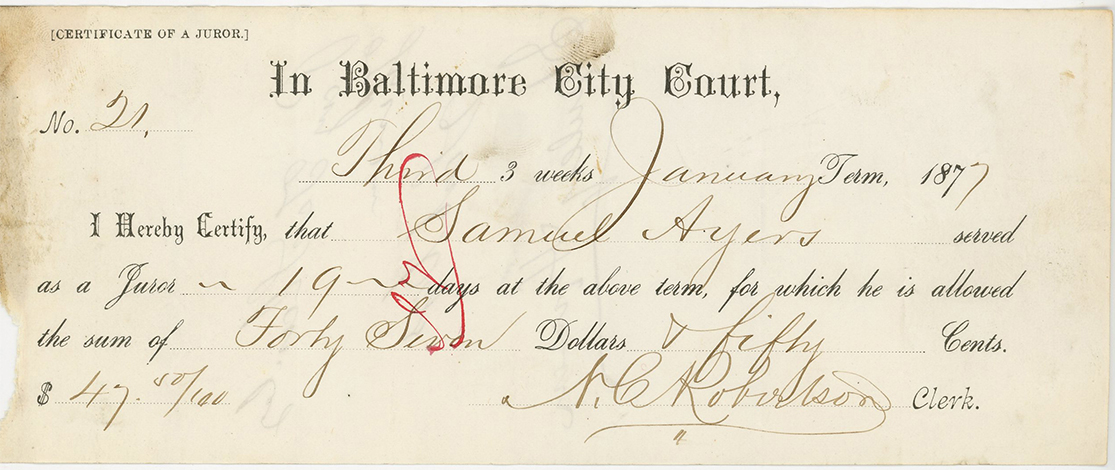 [CERTIFICATE OF A JUROR.]
In Baltimore City Court,
No. 21,
Third 3 weeks January Term, 1877
I Hereby Certify, that Samuel Ayers served
as a Juror 19 days at the above term, for which he is allowed
the sum of Forty Seven Dollars & fifty Cents.
$ 47. 50/100 N. C. Robertson Clerk.